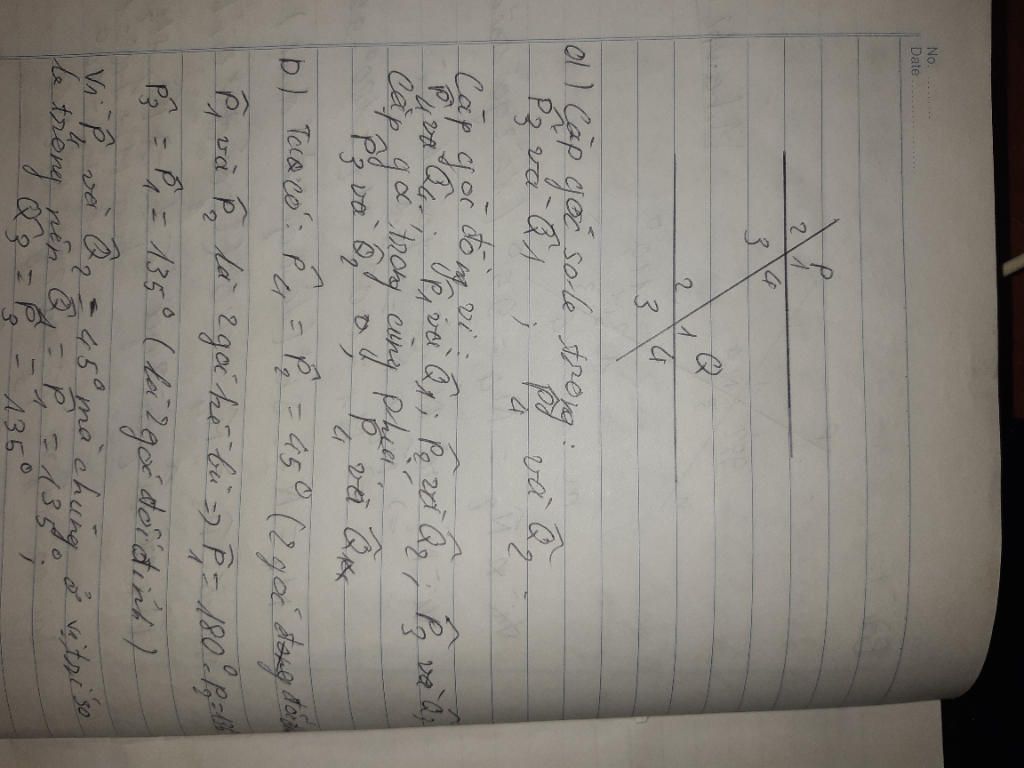 No. ..........
Date ..........
P
2 1
3 4
Q
2 1
3 4
a) Cặp góc sole trong:
P̂3 và Q̂1 ; P̂4 và Q̂2
Cặp góc đồng vị:
P̂4 và Q̂4 ; P̂1 và Q̂1 ; P̂2 và Q̂2 ; P̂3 và Q̂3
Cặp góc trong cùng phía
P̂3 và Q̂2 ; P̂4 và
b) Ta có: P̂4 = P̂2 = 45° (2 góc
P̂1 và P̂2 là 2 góc kề bù => P̂1 = 180° - P̂2 =
P̂3 = P̂1 = 135° (là 2 góc đối đỉnh)
Vì P̂4 và Q̂2 = 45° mà chúng ở vị trí so
le trong nên Q̂1 = P̂1 = 135° ;
Q̂3 = P̂3 = 135°